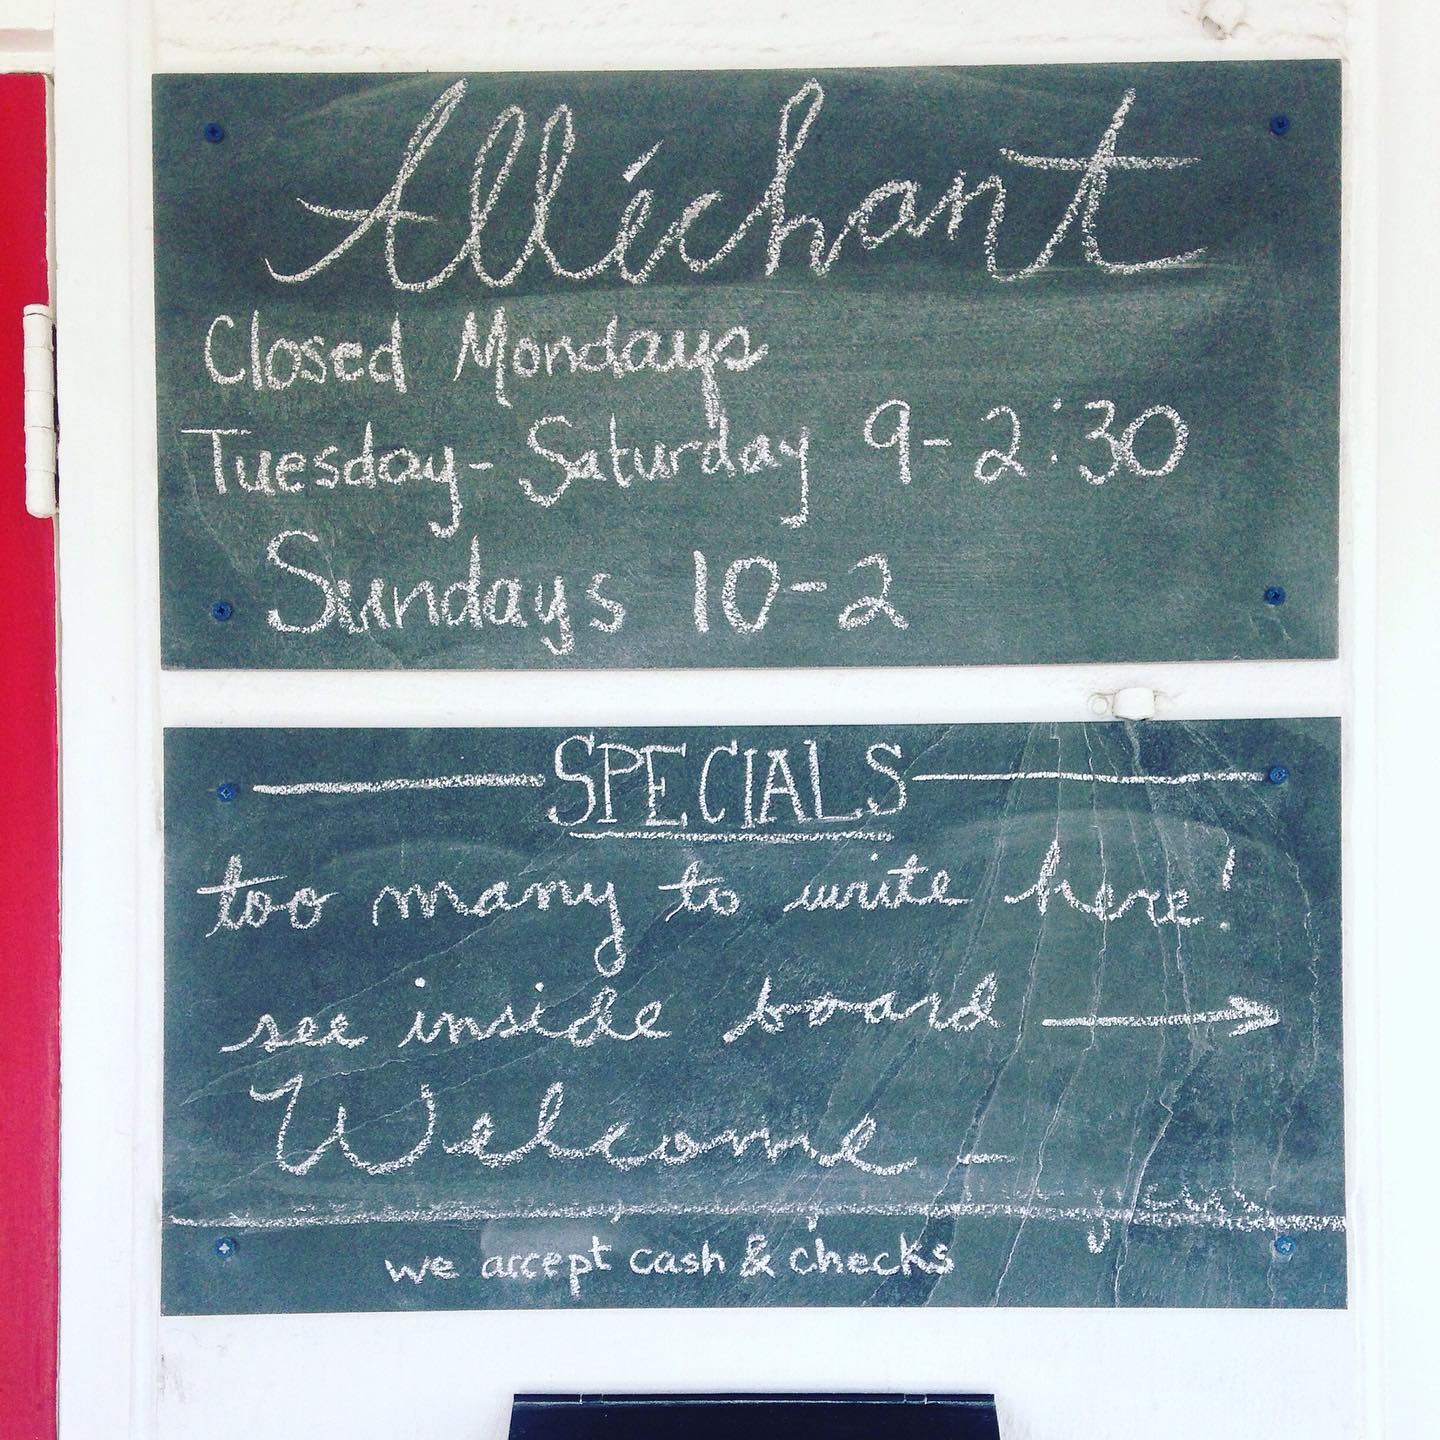 Alléchant
Closed Mondays
Tuesday - Saturday 9-2:30
Sundays 10-2
SPECIALS
too many to write here!
see inside board →
Welcome -
we accept cash & checks